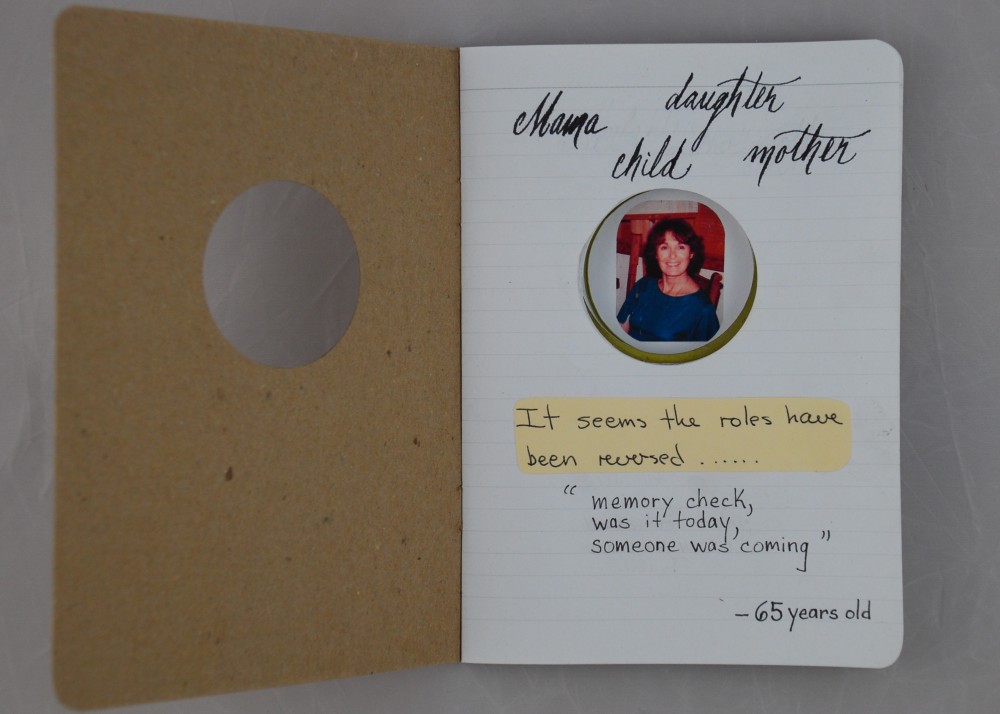 Mama daughter
child mother
It seems the roles have
been reversed ......
" memory check,
was it today,
someone was coming "
– 65 years old